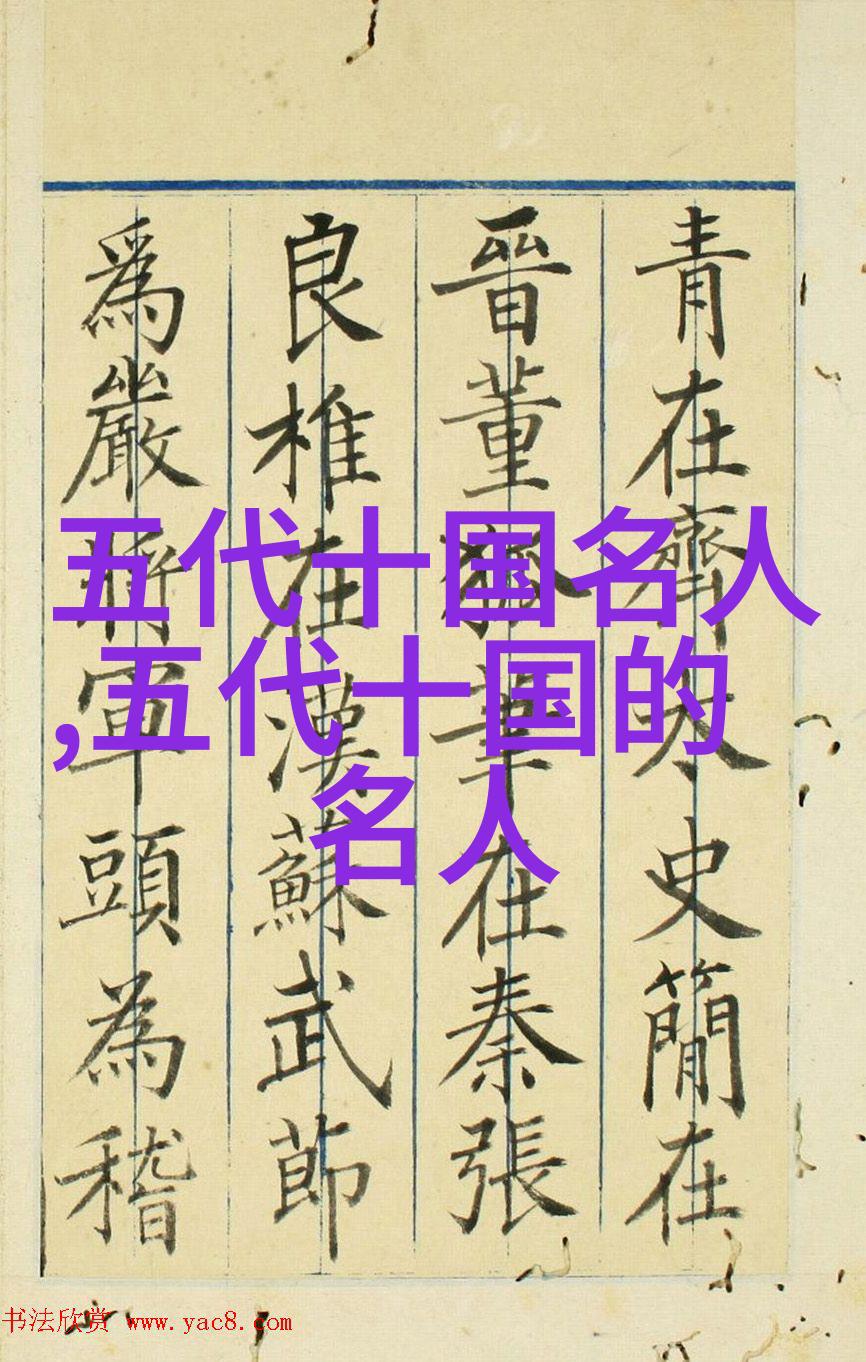 青在齊太史簡在
晉董狐筆在秦張
良椎在漢蘇武節
爲嚴將軍頭為稽
五代十国名人
,五代十国的
名人
书法欣赏 www.yac8.com